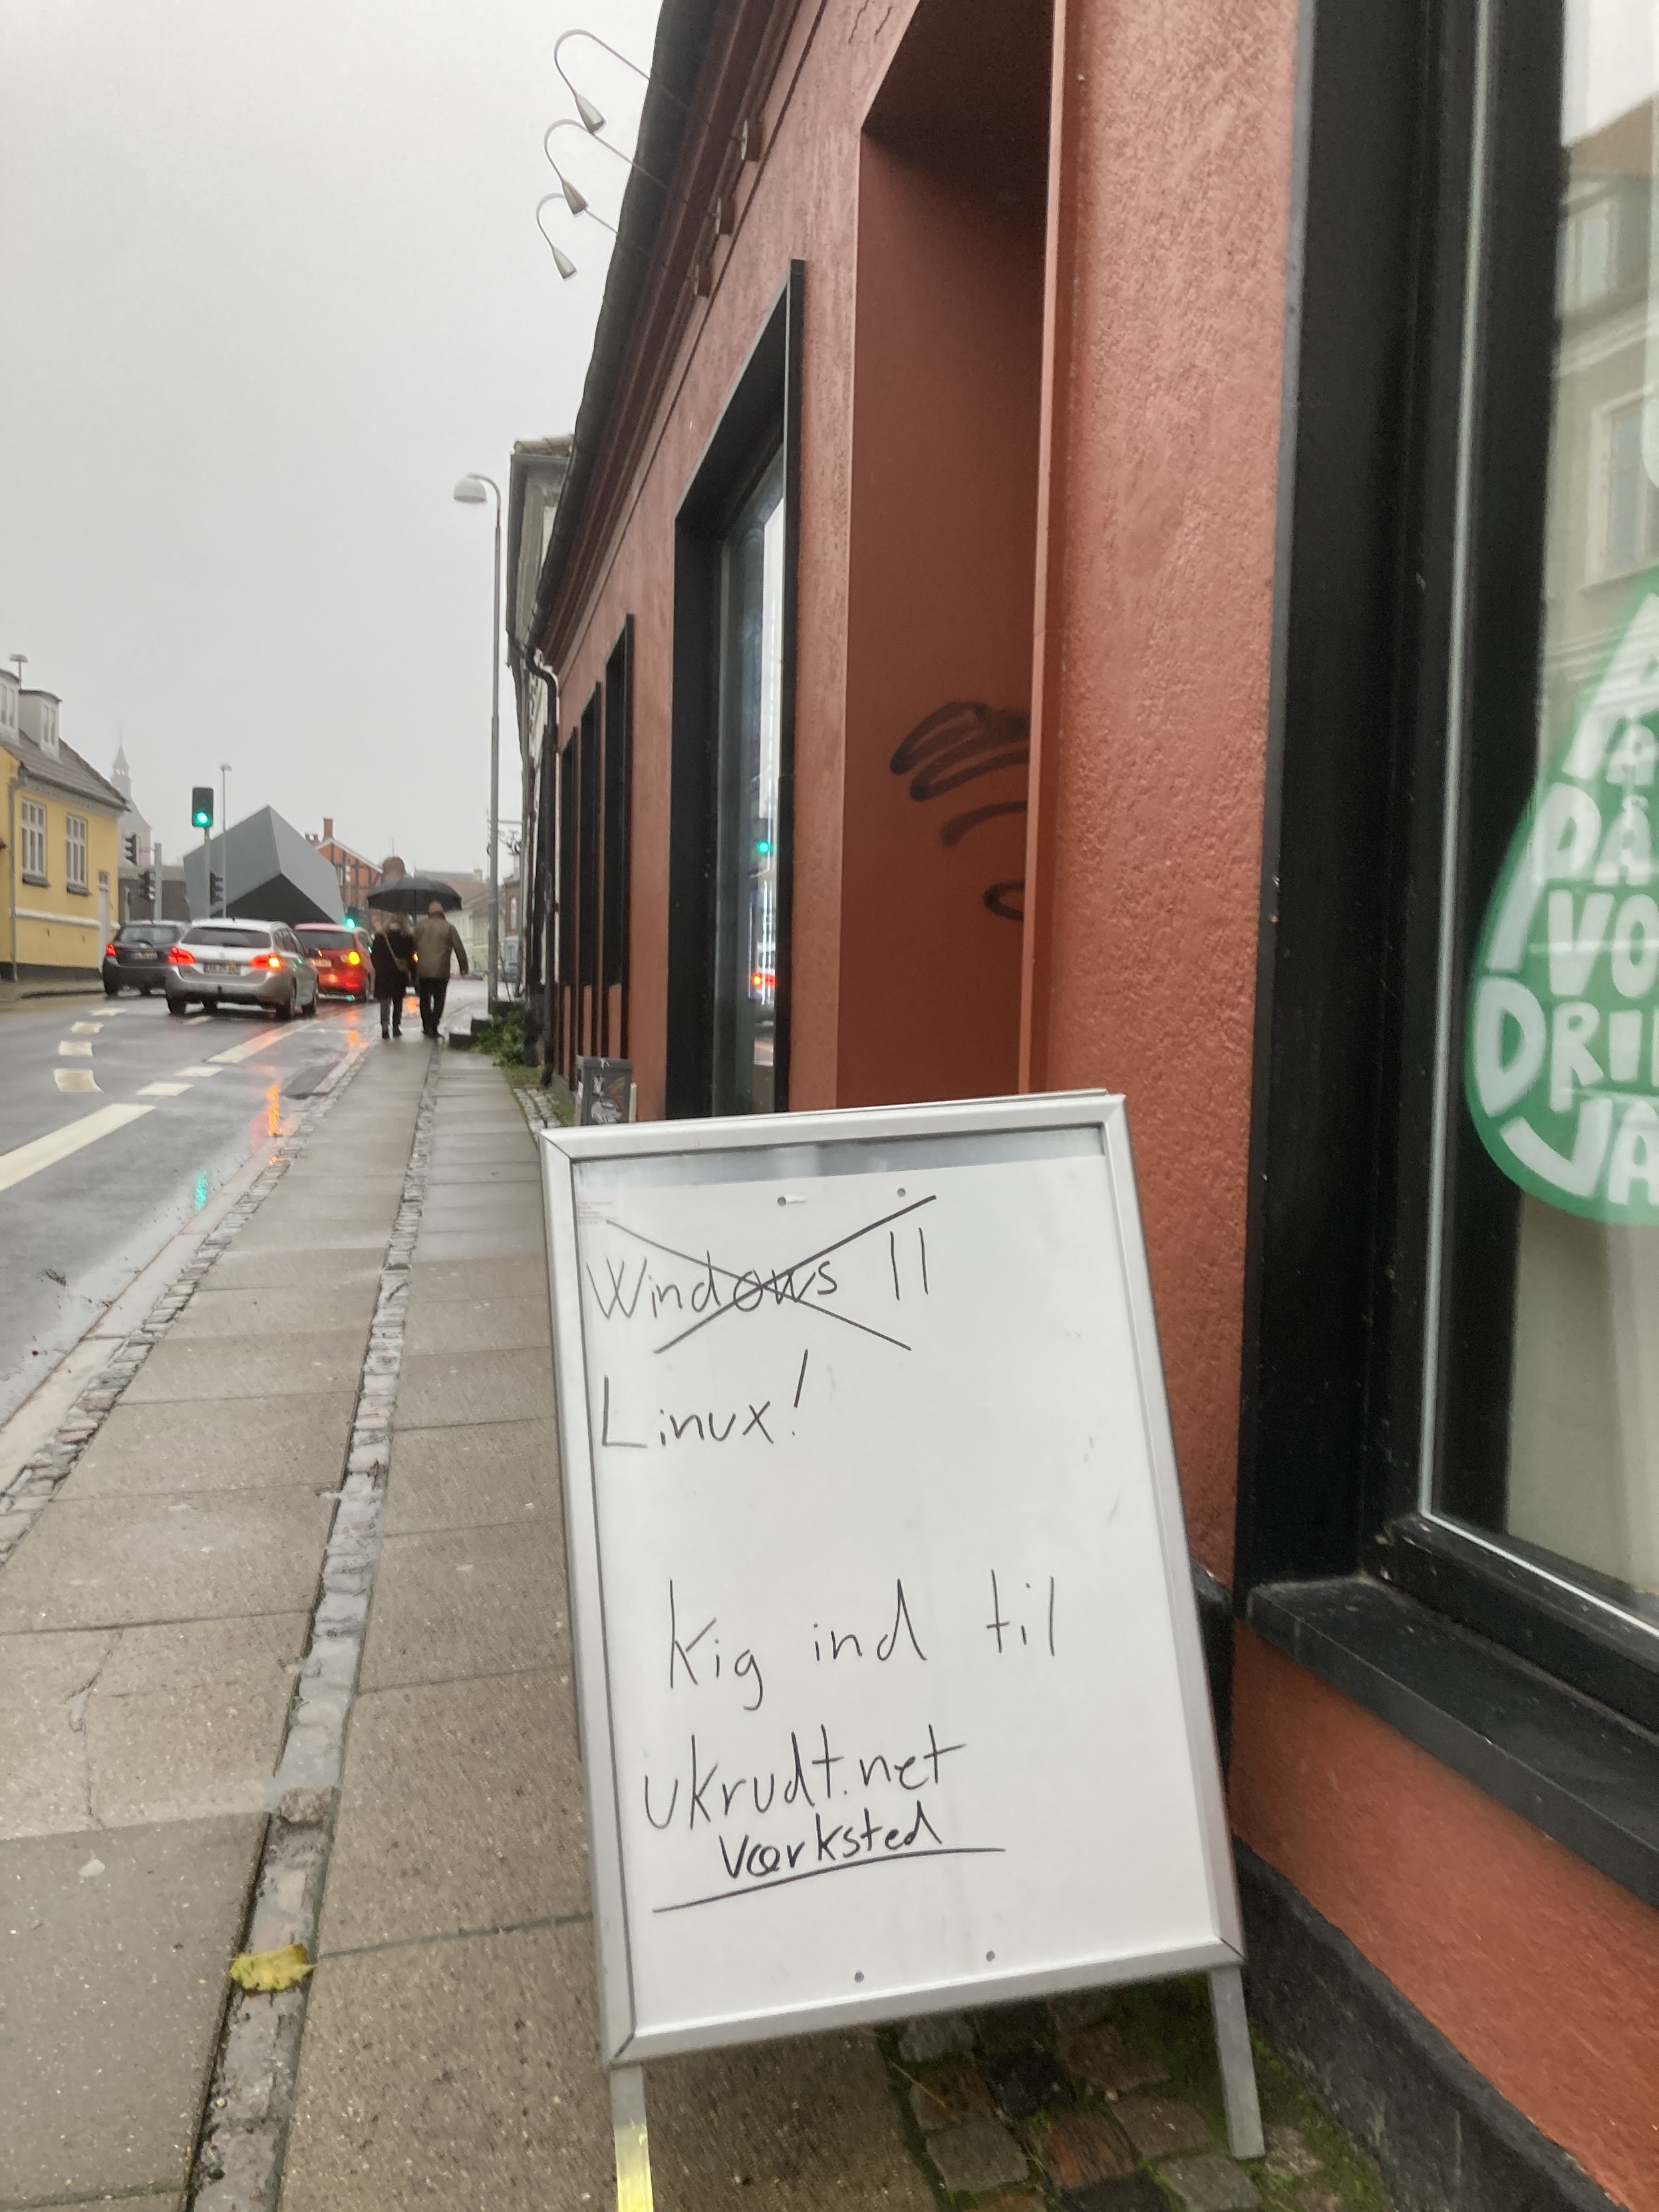 Windows 11
Linux!
Kig ind til
ukrudt.net
Værksted
PÅ
VO
DRI
JA